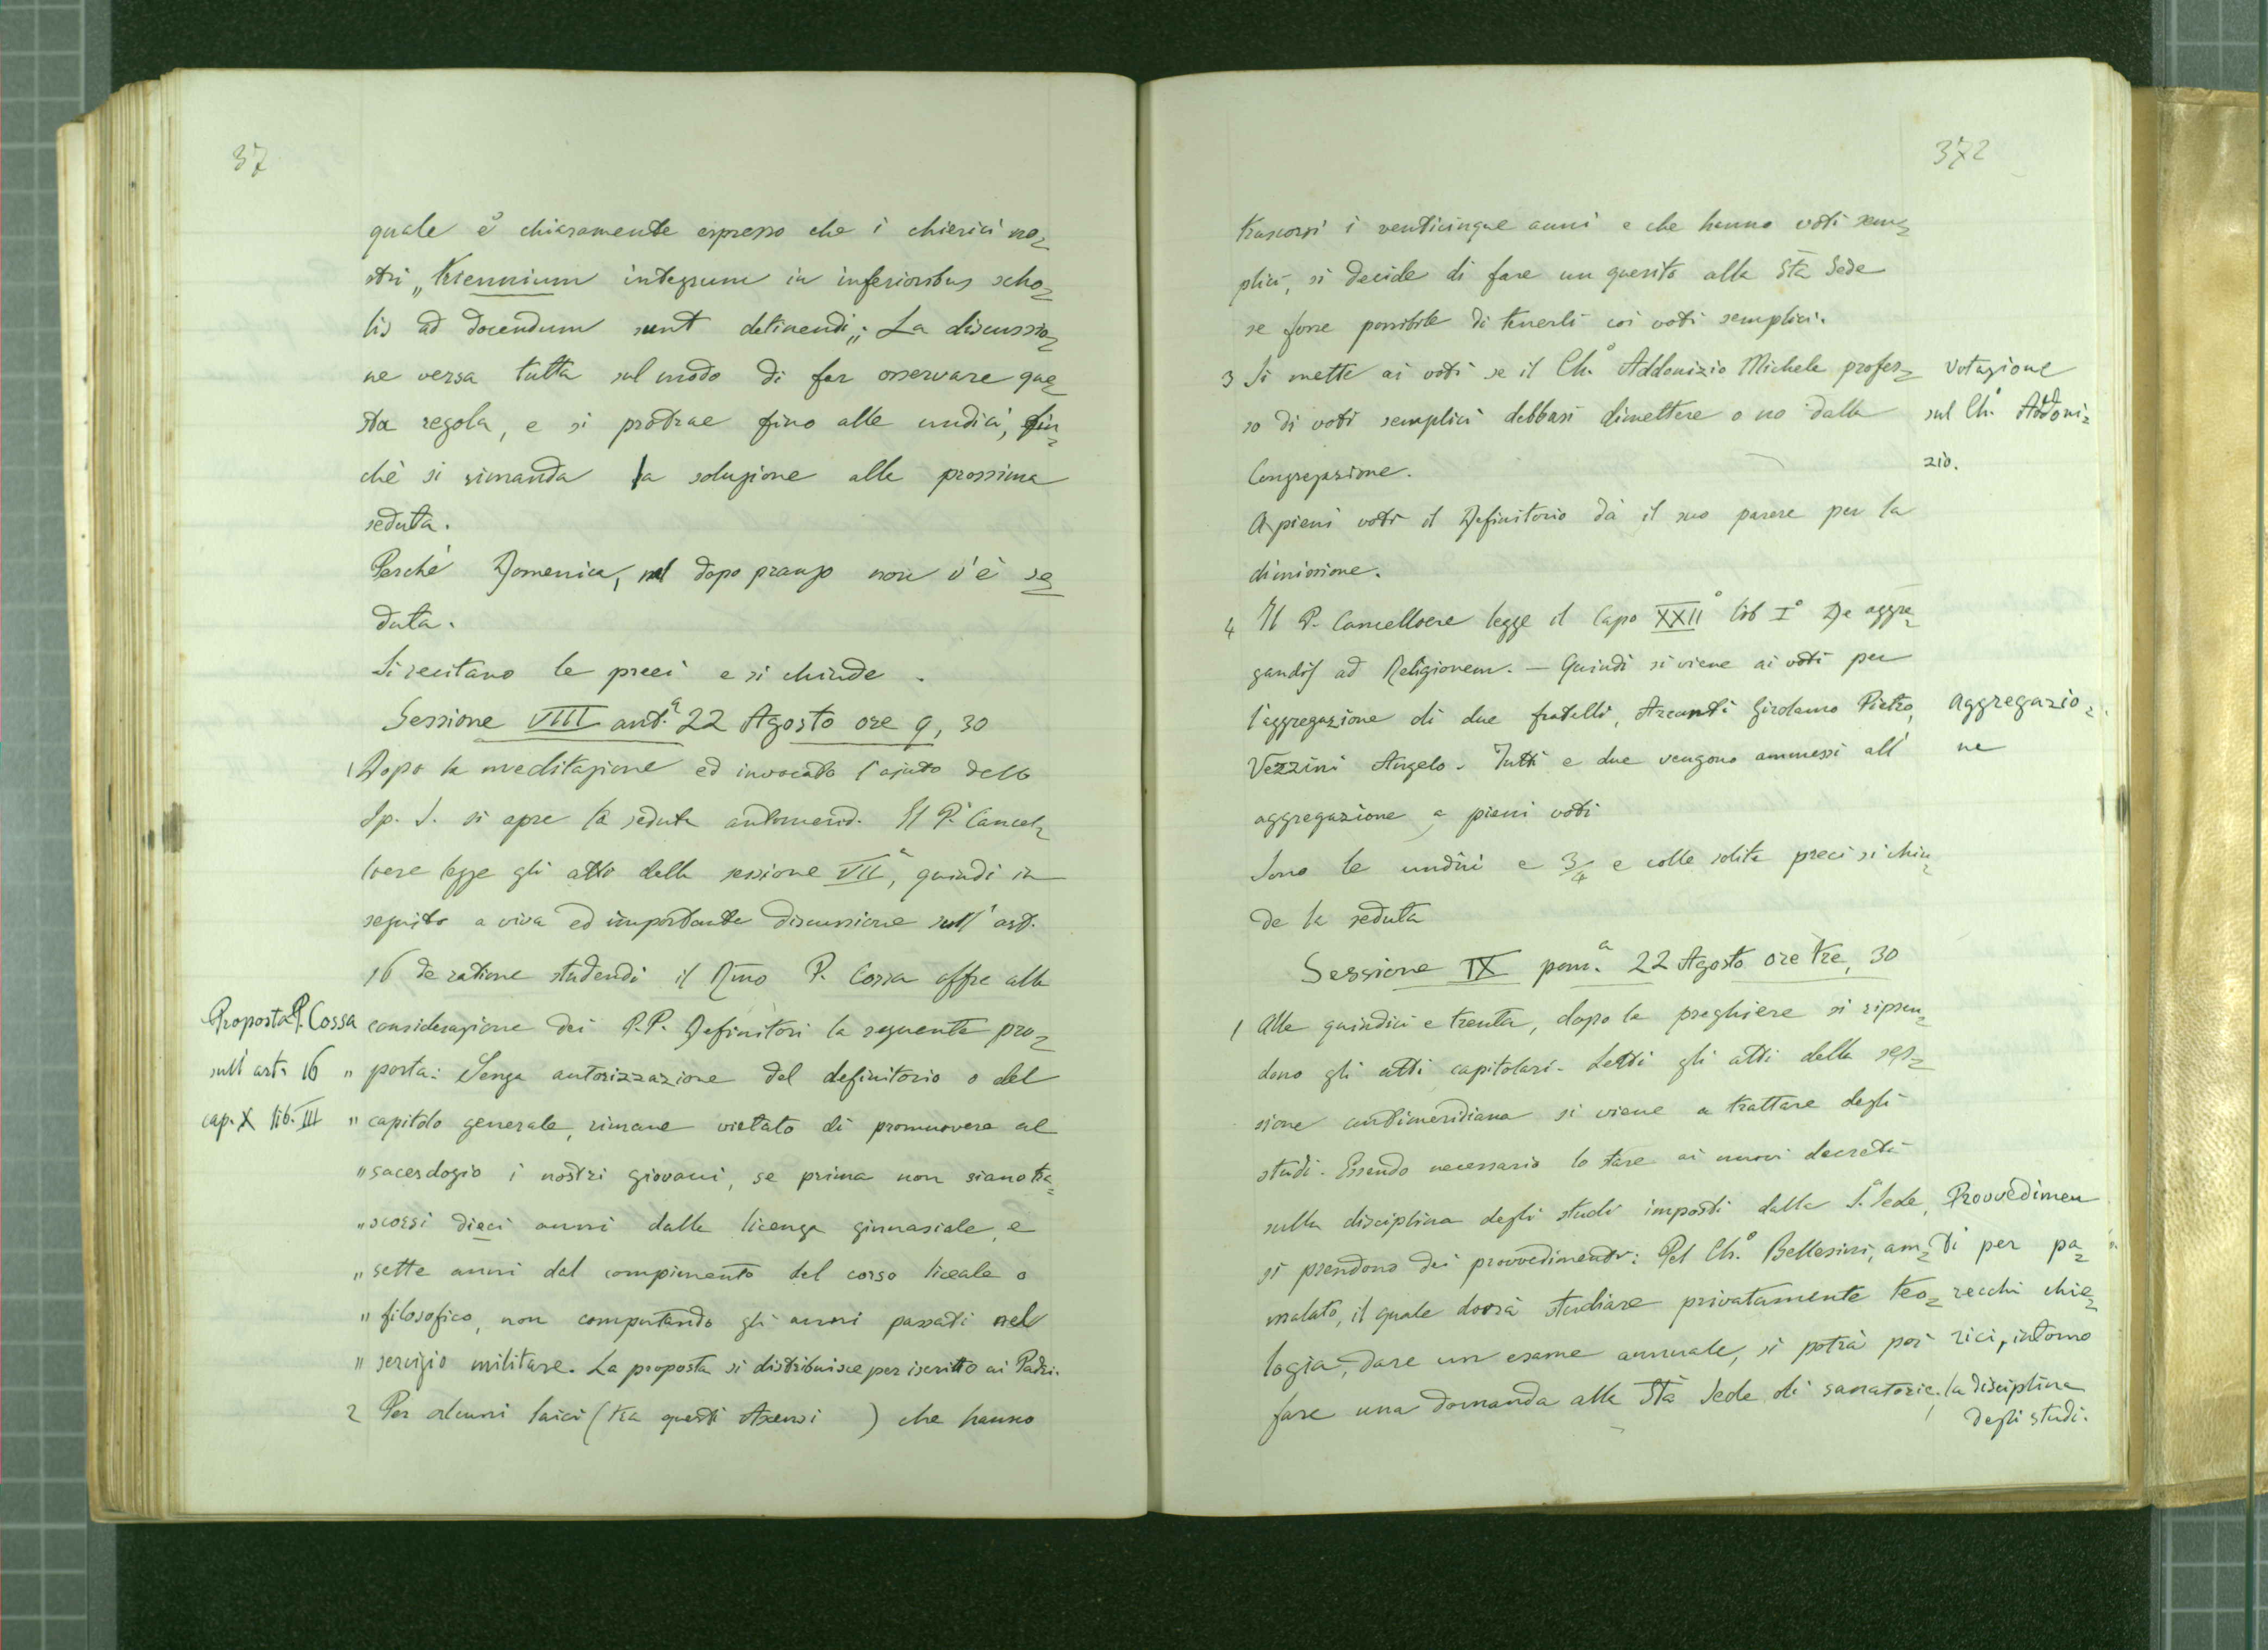 37
quale è chiaramente espresso che i chierici no=
stri „ triennium integrum in inferioribus scho=
lis ad docendum sunt detinendi „. La discussio=
ne versa tutta sul modo di far osservare que=
sta regola, e si protrae fino alle undici, fin=
chè si rimanda la soluzione alla prossima
seduta.
Perchè Domenica, nel dopo pranzo non v'è se=
duta.
Si recitano le preci e si chiude.
Sessione VIII ant.ª 22 Agosto ore 9, 30
1 Dopo la meditazione ed invocato l'ajuto dello
Sp. S. si apre la seduta antimerid. Il P. Cancel=
liere legge gli atti della sessione VIIª, quindi in
seguito a viva ed importante discussione sull'art.
16 de ratione studendi il Rmo P. Cossa offre alla
Proposta P. Cossa
sull'art. 16
cap. X lib. III
considerazione dei P.P. Definitori la seguente pro=
" posta: Senza autorizzazione del definitorio o del
" capitolo generale, rimane vietato di promuovere al
" sacerdozio i nostri giovani, se prima non siano tra=
" scorsi dieci anni dalla licenza ginnasiale, e
" sette anni dal compimento del corso liceale o
" filosofico, non computando gli anni passati nel
" servizio militare. La proposta si distribuisce per iscritto ai Padri.
2 Per alcuni laici (tra questi ) che hanno
372
trascorsi i venticinque anni e che hanno voti sem=
plici, si decide di fare un quesito alla Sta Sede
se fosse possibile di tenerli coi voti semplici.
3 Si mette ai voti se il Ch.º Addonizio Michele profes=
so di voti semplici debbasi dimettere o no dalla
Congregazione.
Votazione
sul Ch.º Addoni=
zio.
A pieni voti il Definitorio dà il suo parere per la
dimissione.
4 Il P. Cancelliere legge il Capo XXIIº lib Iº De aggre=
gandis ad Religionem. — Quindi si viene ai voti per
l'aggregazione di due fratelli, Girolamo Pietro,
Vezzini Angelo. Tutti e due vengono ammessi all'
aggregazione a pieni voti
Aggregazio=
ne
Sono le undici e 3/4 e colle solite preci si chiu=
de la seduta
Sessione IX pom.ª 22 Agosto ore tre, 30
1 Alle quindici e trenta, dopo le preghiere si ripren=
dono gli atti capitolari. Letti gli atti della ses=
sione antimeridiana si viene a trattare degli
studi. Essendo necessario lo stare ai nuovi decreti
sulla disciplina degli studi imposti dalla S.ª Sede,
si prendono dei provvedimenti: Pel Ch.º Bellesini, am=
malato, il quale dovrà studiare privatamente teo=
logia, dare un esame annuale, si potrà poi
fare una domanda alla Sta Sede di sanatoria.
Provvedimen
ti per pa=
recchi chie=
rici, intorno
la disciplina
degli studi.